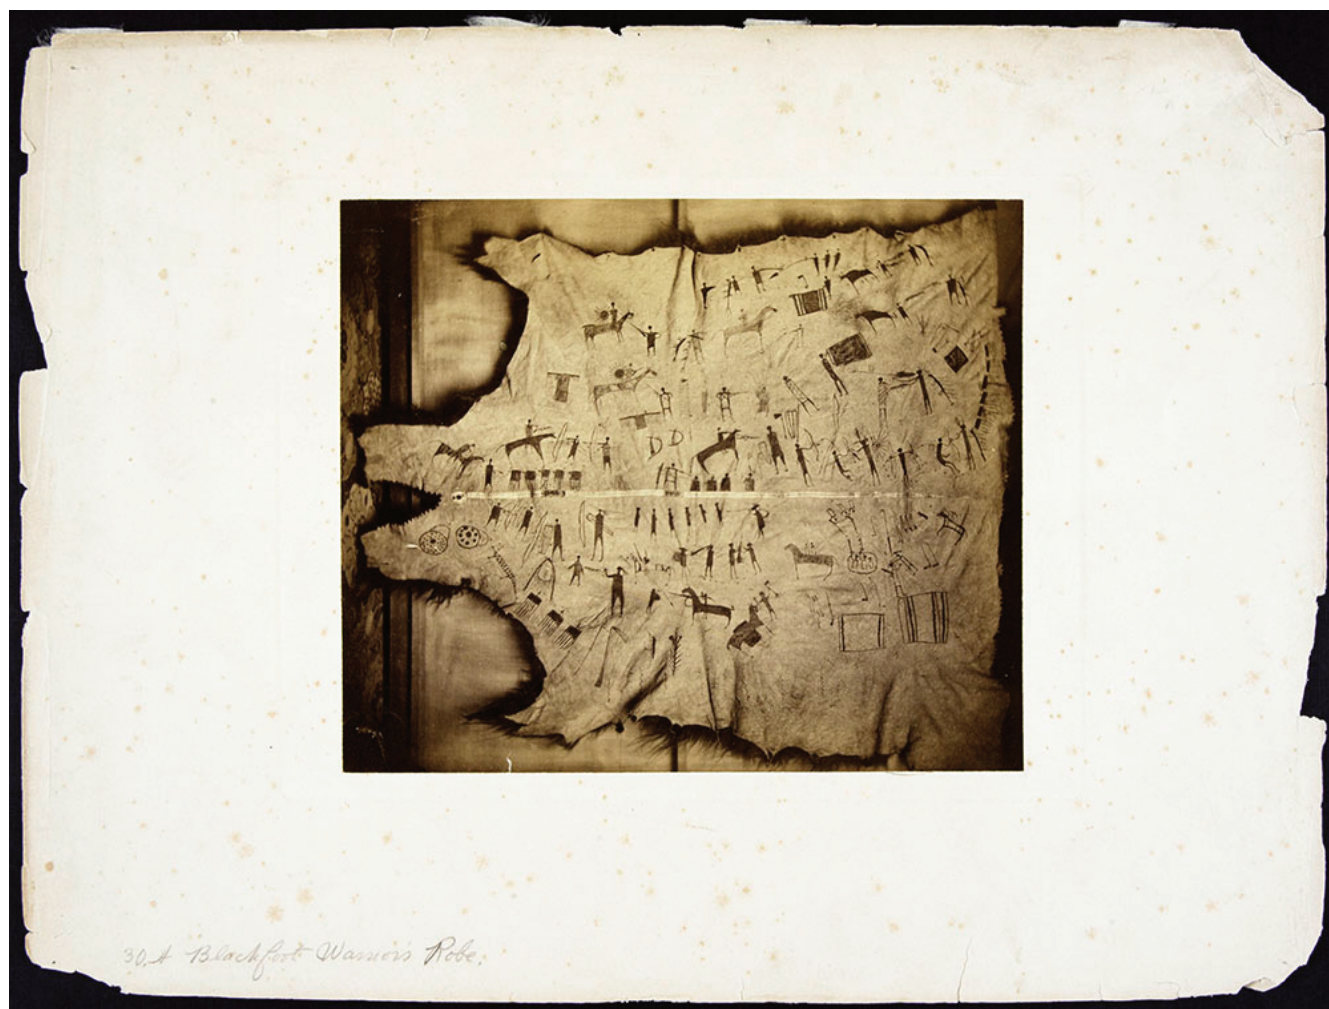 30. A Blackfoot Warriors Robe.